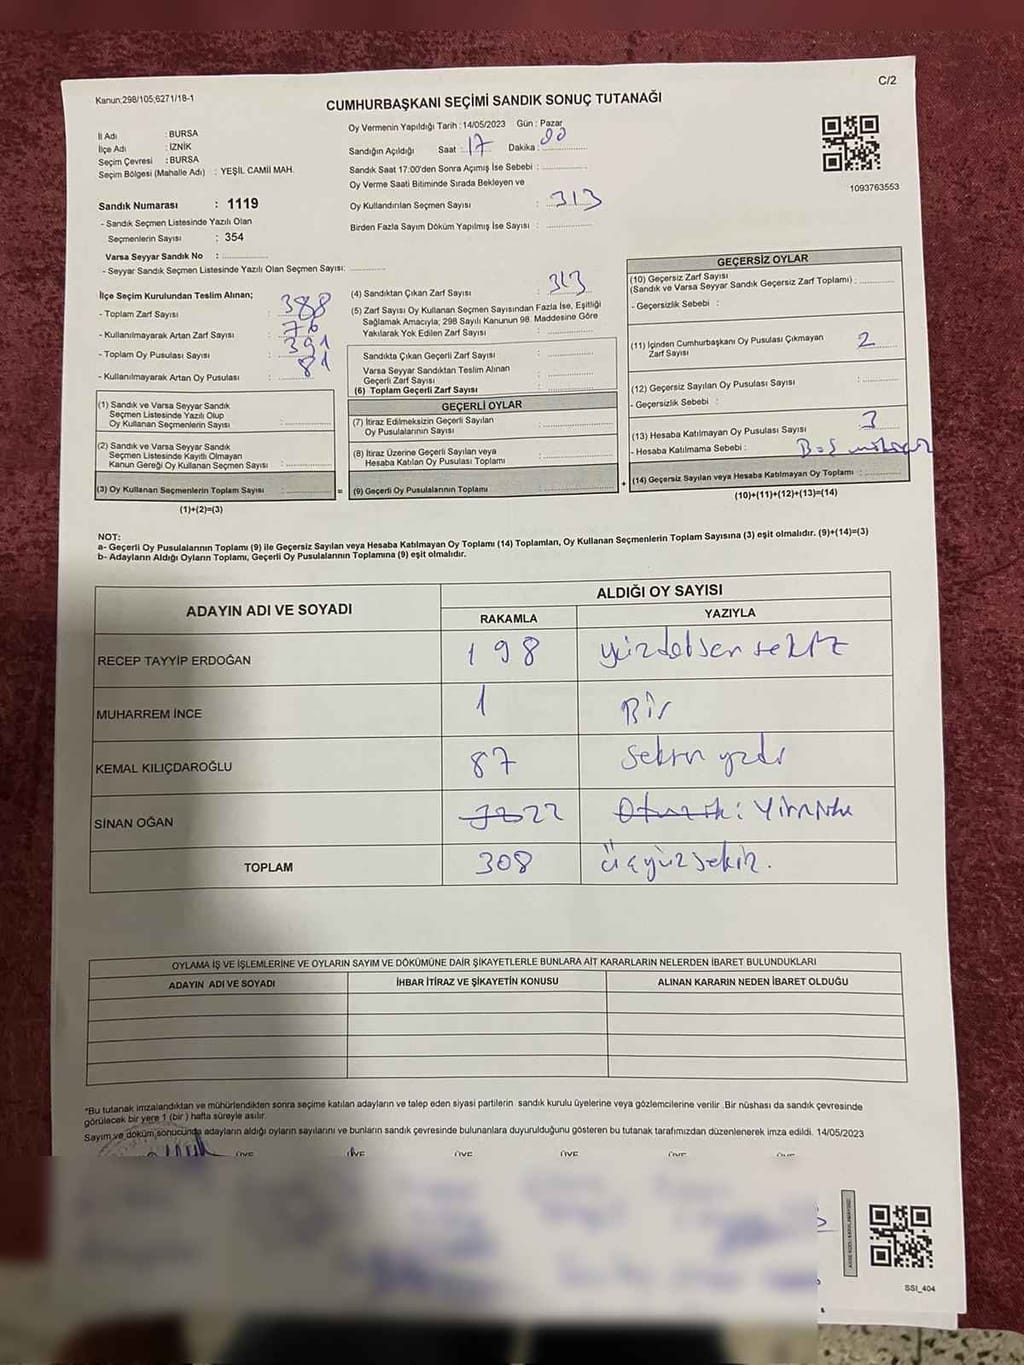 Kanun:298/105;6271/18-1
C/2
CUMHURBAŞKANI SEÇİMİ SANDIK SONUÇ TUTANAĞI
İl Adı : BURSA
İlçe Adı : İZNİK
Seçim Çevresi : BURSA
Seçim Bölgesi (Mahalle Adı) : YEŞİL CAMİİ MAH.
Sandık Numarası : 1119
- Sandık Seçmen Listesinde Yazılı Olan
Seçmenlerin Sayısı : 354
Varsa Seyyar Sandık No :
- Seyyar Sandık Seçmen Listesinde Yazılı Olan Seçmen Sayısı:
Oy Vermenin Yapıldığı Tarih : 14/05/2023 Gün : Pazar
Sandığın Açıldığı Saat : 17 Dakika : 00
Sandık Saat 17:00'den Sonra Açımış İse Sebebi :
Oy Verme Saati Bitiminde Sırada Bekleyen ve
Oy Kullandırılan Seçmen Sayısı : 313
Birden Fazla Sayım Döküm Yapılmış İse Sayısı :
1093763553
İlçe Seçim Kurulundan Teslim Alınan;
- Toplam Zarf Sayısı : 388
- Kullanılmayarak Artan Zarf Sayısı : 76
- Toplam Oy Pusulası Sayısı : 391
- Kullanılmayarak Artan Oy Pusulası : 81
(1) Sandık ve Varsa Seyyar Sandık
Seçmen Listesinde Yazılı Olup
Oy Kullanan Seçmenlerin Sayısı :
(2) Sandık ve Varsa Seyyar Sandık
Seçmen Listesinde Kayıtlı Olmayan
Kanun Gereği Oy Kullanan Seçmen Sayısı :
(3) Oy Kullanan Seçmenlerin Toplam Sayısı :
(1)+(2)=(3)
(4) Sandıktan Çıkan Zarf Sayısı : 313
(5) Zarf Sayısı Oy Kullanan Seçmen Sayısından Fazla İse, Eşitliği
Sağlamak Amacıyla; 298 Sayılı Kanunun 98. Maddesine Göre
Yakılarak Yok Edilen Zarf Sayısı :
Sandıkta Çıkan Geçerli Zarf Sayısı :
Varsa Seyyar Sandıktan Teslim Alınan
Geçerli Zarf Sayısı :
(6) Toplam Geçerli Zarf Sayısı :
GEÇERLİ OYLAR
(7) İtiraz Edilmeksizin Geçerli Sayılan
Oy Pusulalarının Sayısı :
(8) İtiraz Üzerine Geçerli Sayılan veya
Hesaba Katılan Oy Pusulası Toplamı :
= (9) Geçerli Oy Pusulalarının Toplamı :
GEÇERSİZ OYLAR
(10) Geçersiz Zarf Sayısı
(Sandık ve Varsa Seyyar Sandık Geçersiz Zarf Toplamı) :
- Geçersizlik Sebebi :
(11) İçinden Cumhurbaşkanı Oy Pusulası Çıkmayan
Zarf Sayısı : 2
(12) Geçersiz Sayılan Oy Pusulası Sayısı :
- Geçersizlik Sebebi :
(13) Hesaba Katılmayan Oy Pusulası Sayısı : 3
- Hesaba Katılmama Sebebi :
+ (14) Geçersiz Sayılan veya Hesaba Katılmayan Oy Toplamı :
(10)+(11)+(12)+(13)=(14)
NOT:
a- Geçerli Oy Pusulalarının Toplamı (9) ile Geçersiz Sayılan veya Hesaba Katılmayan Oy Toplamı (14) Toplamları, Oy Kullanan Seçmenlerin Toplam Sayısına (3) eşit olmalıdır. (9)+(14)=(3)
b- Adayların Aldığı Oyların Toplamı, Geçerli Oy Pusulalarının Toplamına (9) eşit olmalıdır.
ADAYIN ADI VE SOYADI
ALDIĞI OY SAYISI
RAKAMLA YAZIYLA
RECEP TAYYİP ERDOĞAN 198 yüzdoksan sekiz
MUHARREM İNCE 1 Bir
KEMAL KILIÇDAROĞLU 87 seksen yedi
SİNAN OĞAN 32 22 Otuziki: Yirmiiki
TOPLAM 308 üçyüz sekiz.
OYLAMA İŞ VE İŞLEMLERİNE VE OYLARIN SAYIM VE DÖKÜMÜNE DAİR ŞİKAYETLERLE BUNLARA AİT KARARLARIN NELERDEN İBARET BULUNDUKLARI
ADAYIN ADI VE SOYADI İHBAR İTİRAZ VE ŞİKAYETİN KONUSU ALINAN KARARIN NEDEN İBARET OLDUĞU
*Bu tutanak imzalandıktan ve mühürlendikten sonra seçime katılan adayların ve talep eden siyasi partilerin sandık kurulu üyelerine veya gözlemcilerine verilir .Bir nüshası da sandık çevresinde
görülecek bir yere 1 (bir) hafta süreyle asılır.
Sayım ve döküm sonucunda adayların aldığı oyların sayılarını ve bunların sandık çevresinde bulunanlara duyurulduğunu gösteren bu tutanak tarafımızdan düzenlenerek imza edildi. 14/05/2023
ÜYE ÜYE ÜYE ÜYE
SSI_404